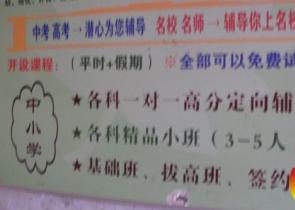 中考 高考→潜心为您辅导 名校 名师→辅导你上名校
开设课程: (平时+假期) ※全部可以免费试
中小学
★各科一对一高分定向辅
★各科精品小班 (3-5人
★基础班、拔高班、签约